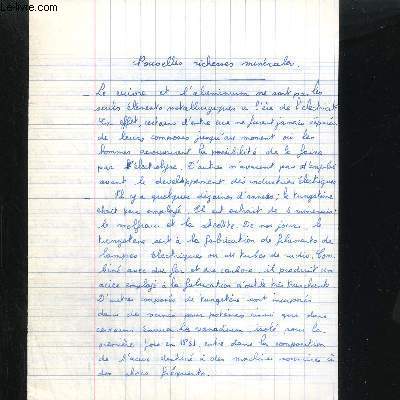 Le-livre.com
Nouvelles richesses minérales.
Le cuivre et l'aluminium ne sont pas les
seuls éléments métallurgiques à l'ère de l'électricité
En effet, certains d'entre eux ne furent jamais séparés
de leurs composés jusqu'au moment où les
hommes découvrirent la possibilité de le faire
par l'électrolyse. D'autres n'avaient pas d'emploi
avant le développement des industries électriques
Il y a quelques dizaines d'années, le tungstène
était peu employé. Il est extrait de 2 minerais
le wolfram et la scheelite. De nos jours, le
tungstène sert à la fabrication de filaments de
lampes électriques ou de tubes de radio. Com
biné avec du fer et du carbone, il produit un
acier employé à la fabrication d'outils très tranchants
D'autres composés de tungstène sont incorporés
dans des vernis pour poteries ainsi que dans
certains Le vanadium isolé pour la
première fois en 1831, entre dans la composition
de l'acier destiné à des machines soumises à
des chocs fréquents.